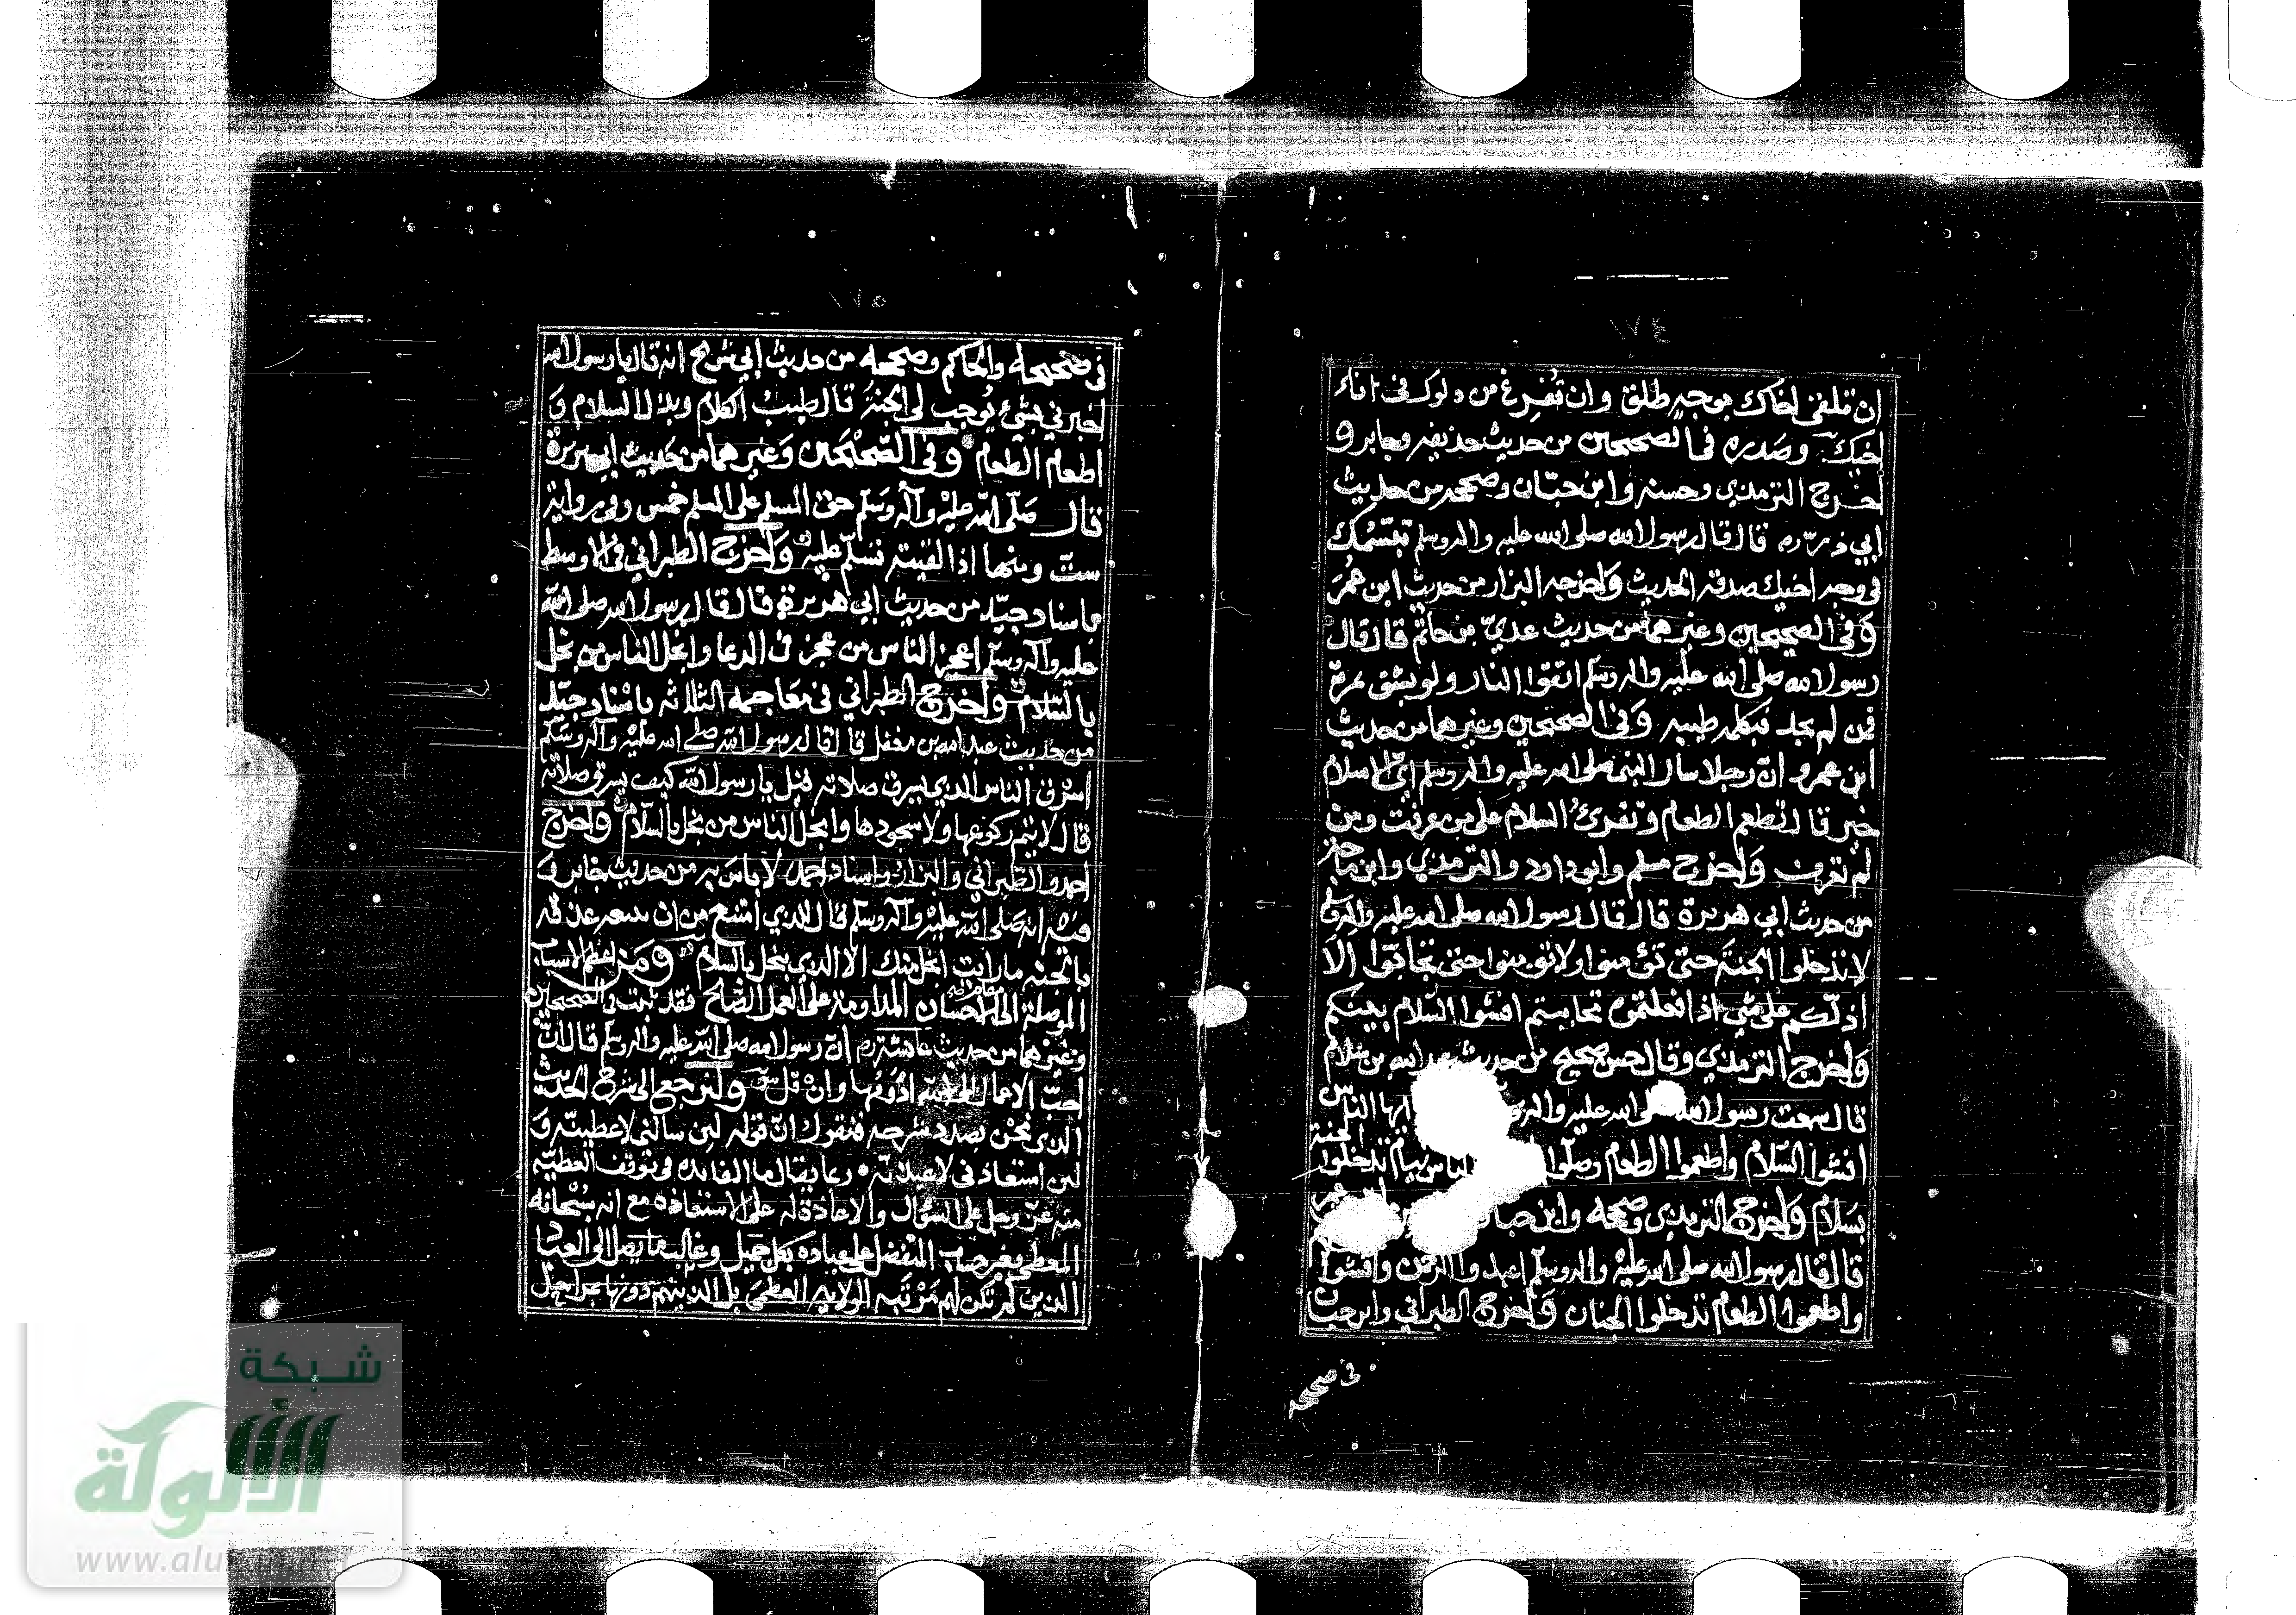 ١٧٤
ان تلقى اخاك بوجه طلق وان تفرغ من دلوك فى اناء
اخيك وصدره فى الصحيحين من حديث حذيفه وجابر و
اخرج الترمذي وحسنه وابن حبان وصححه من حديث
ابي ذر رم قال قال رسول الله صلى الله عليه واله وسلم تبسمك
فى وجه اخيك صدقه الحديث واخرجه البزار من حديث ابن عمر
وفى الصحيحين وغيرهما من حديث عدي بن حاتم قال قال
رسول الله صلى الله عليه واله وسلم اتقوا النار ولو بشق تمرة
فمن لم يجد فبكلمه طيبه وفى الصحيحين وغيرهما من حديث
ابن عمرو ان رجلا سال النبى صلى الله عليه واله وسلم اي الاسلام
خير قال تطعم الطعام وتقرئ السلام على من عرفت ومن
لم تعرف واخرج مسلم وابو داود والترمذي وابن ماجه
من حديث ابي هريرة قال قال رسول الله صلى الله عليه واله وسلم
لا تدخلوا الجنة حتى تؤمنوا ولا تومنوا حتى تحابوا الا
ادلكم على شي اذا فعلتموه تحاببتم افشوا السلام بينكم
واخرج الترمذي وقال حسن صحيح من حديث عبد الله بن سلام
قال سمعت رسول الله صلى الله عليه واله ايها الناس
افشوا السلام واطعموا الطعام وصلوا الناس نيام تدخلوا الجنة
بسلام واخرج الترمذي وصححه وابن حبان
قال قال رسول الله صلى الله عليه واله وسلم اعبدوا الرحمن وافشوا
واطعموا الطعام تدخلوا الجنان واخرج الطبراني وابن حبان
فى صحيحه
١٧٥
فى صحيحه والحاكم وصححه من حديث ابي شريح انه قال يا رسول الله
اخبرني بشيئ يوجب لى الجنة قال طيب الكلام وبذل السلام و
اطعام الطعام وفى الصحيحين وغيرهما من حديث ابي هريرة
قال صلى الله عليه وآله وسلم حق المسلم على المسلم خمس وفى رواية
ست ومنها اذا لقيته تسلم عليه واخرج الطبراني فى الاوسط
باسناد جيد من حديث ابي هريرة قال قال رسول الله صلى الله
عليه وآله وسلم اعجز الناس من عجز فى الدعا وابخل الناس من بخل
بالسلام واخرج الطبراني فى معاجمه الثلاثه باسناد جيد
من حديث عبد الله بن مغفل قال قال رسول الله صلى الله عليه وآله وسلم
اسرق الناس الذي يسرق صلاته قيل يا رسول الله كيف يسرق صلاته
قال لا يتم ركوعها ولا سجودها وابخل الناس من بخل بالسلام واخرج
احمد والطبراني والبزار واسناد احمد لا باس به من حديث جابر و
فيه انه صلى الله عليه وآله وسلم قال للذي امتنع من ان عذقه
ما رايت ابخل منك الا الذي يبخل بالسلام ومن اعظم الاسباب
الموصلة الى مقام الاحسان الملاومة على العمل الصالح فقد ثبت فى الصحيحين
وغيرهما من حديث عائشة رم ان رسول الله صلى الله عليه واله وسلم قال ان
احب الاعمال الى الله ادومها وان قل ولنرجع الى شرح الحديث
الذي نحن بصدد شرحه فنقول ان قوله لئن سالنى لاعطينه و
لئن استعاذ فى لاعيذنه ربما يقال ما الفائده فى توقف العطيه
منه عز وجل على السؤال والاعاذة له على الاستعاذه مع انه سبحانه
المعطى بغير حساب المتفضل على عباده بكل جميل وغالب ما يصل الى العباد
الذين لم تكن لهم مرتبه الولايه العظمى بل الذين هم دونها بمراحل
شبكة
الألولة